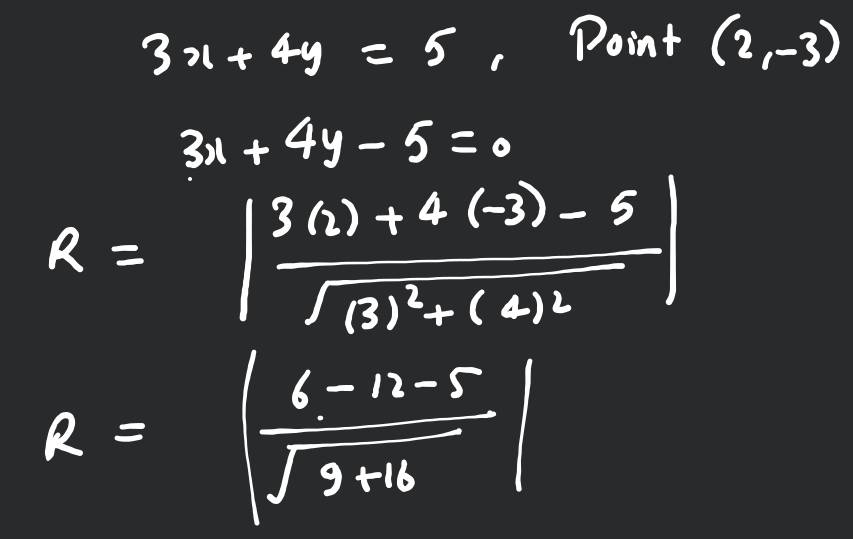 3x + 4y = 5 , Point (2,-3)
3x + 4y - 5 = 0
R = | 3(2) + 4(-3) - 5 / √(3)² + (4)² |
R = | 6 - 12 - 5 / √9 + 16 |